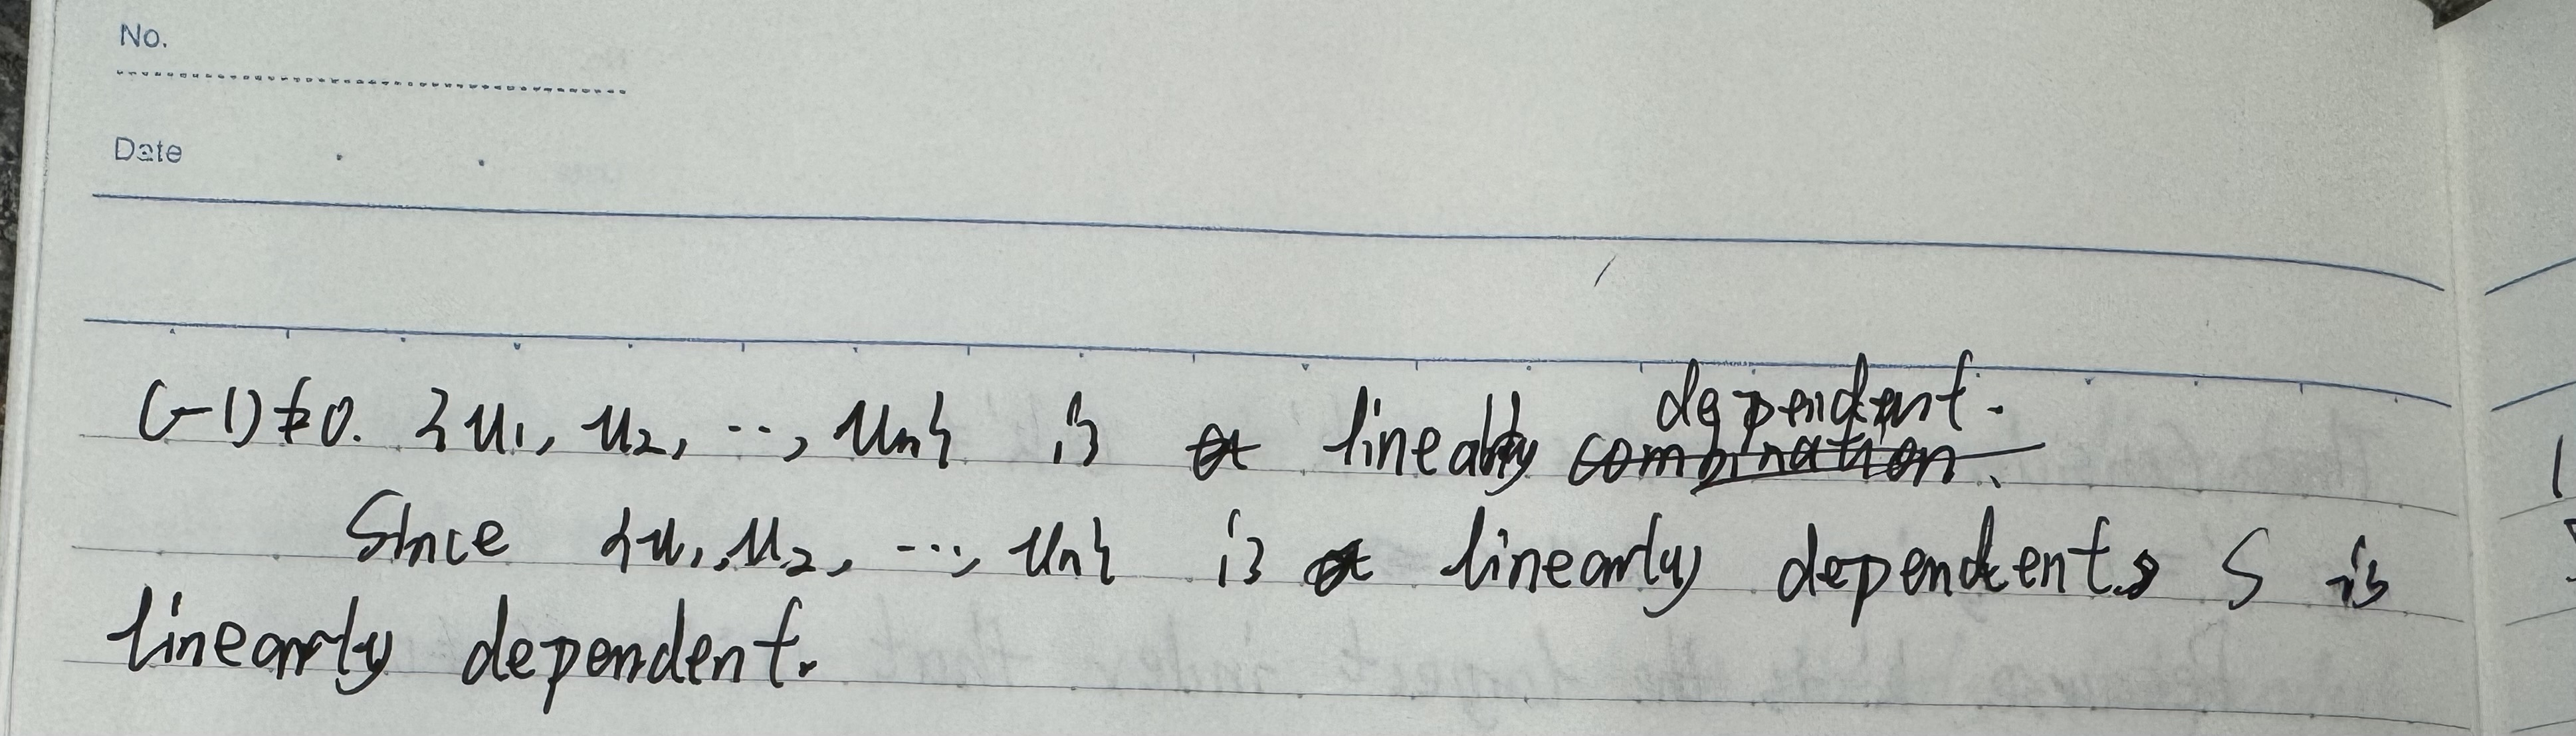 No.
Date
(-1)≠0. {u₁, u₂, ..., uₙ} is linearly dependent.
Since {u₁, u₂, ..., uₙ} is linearly dependent, S is
linearly dependent.